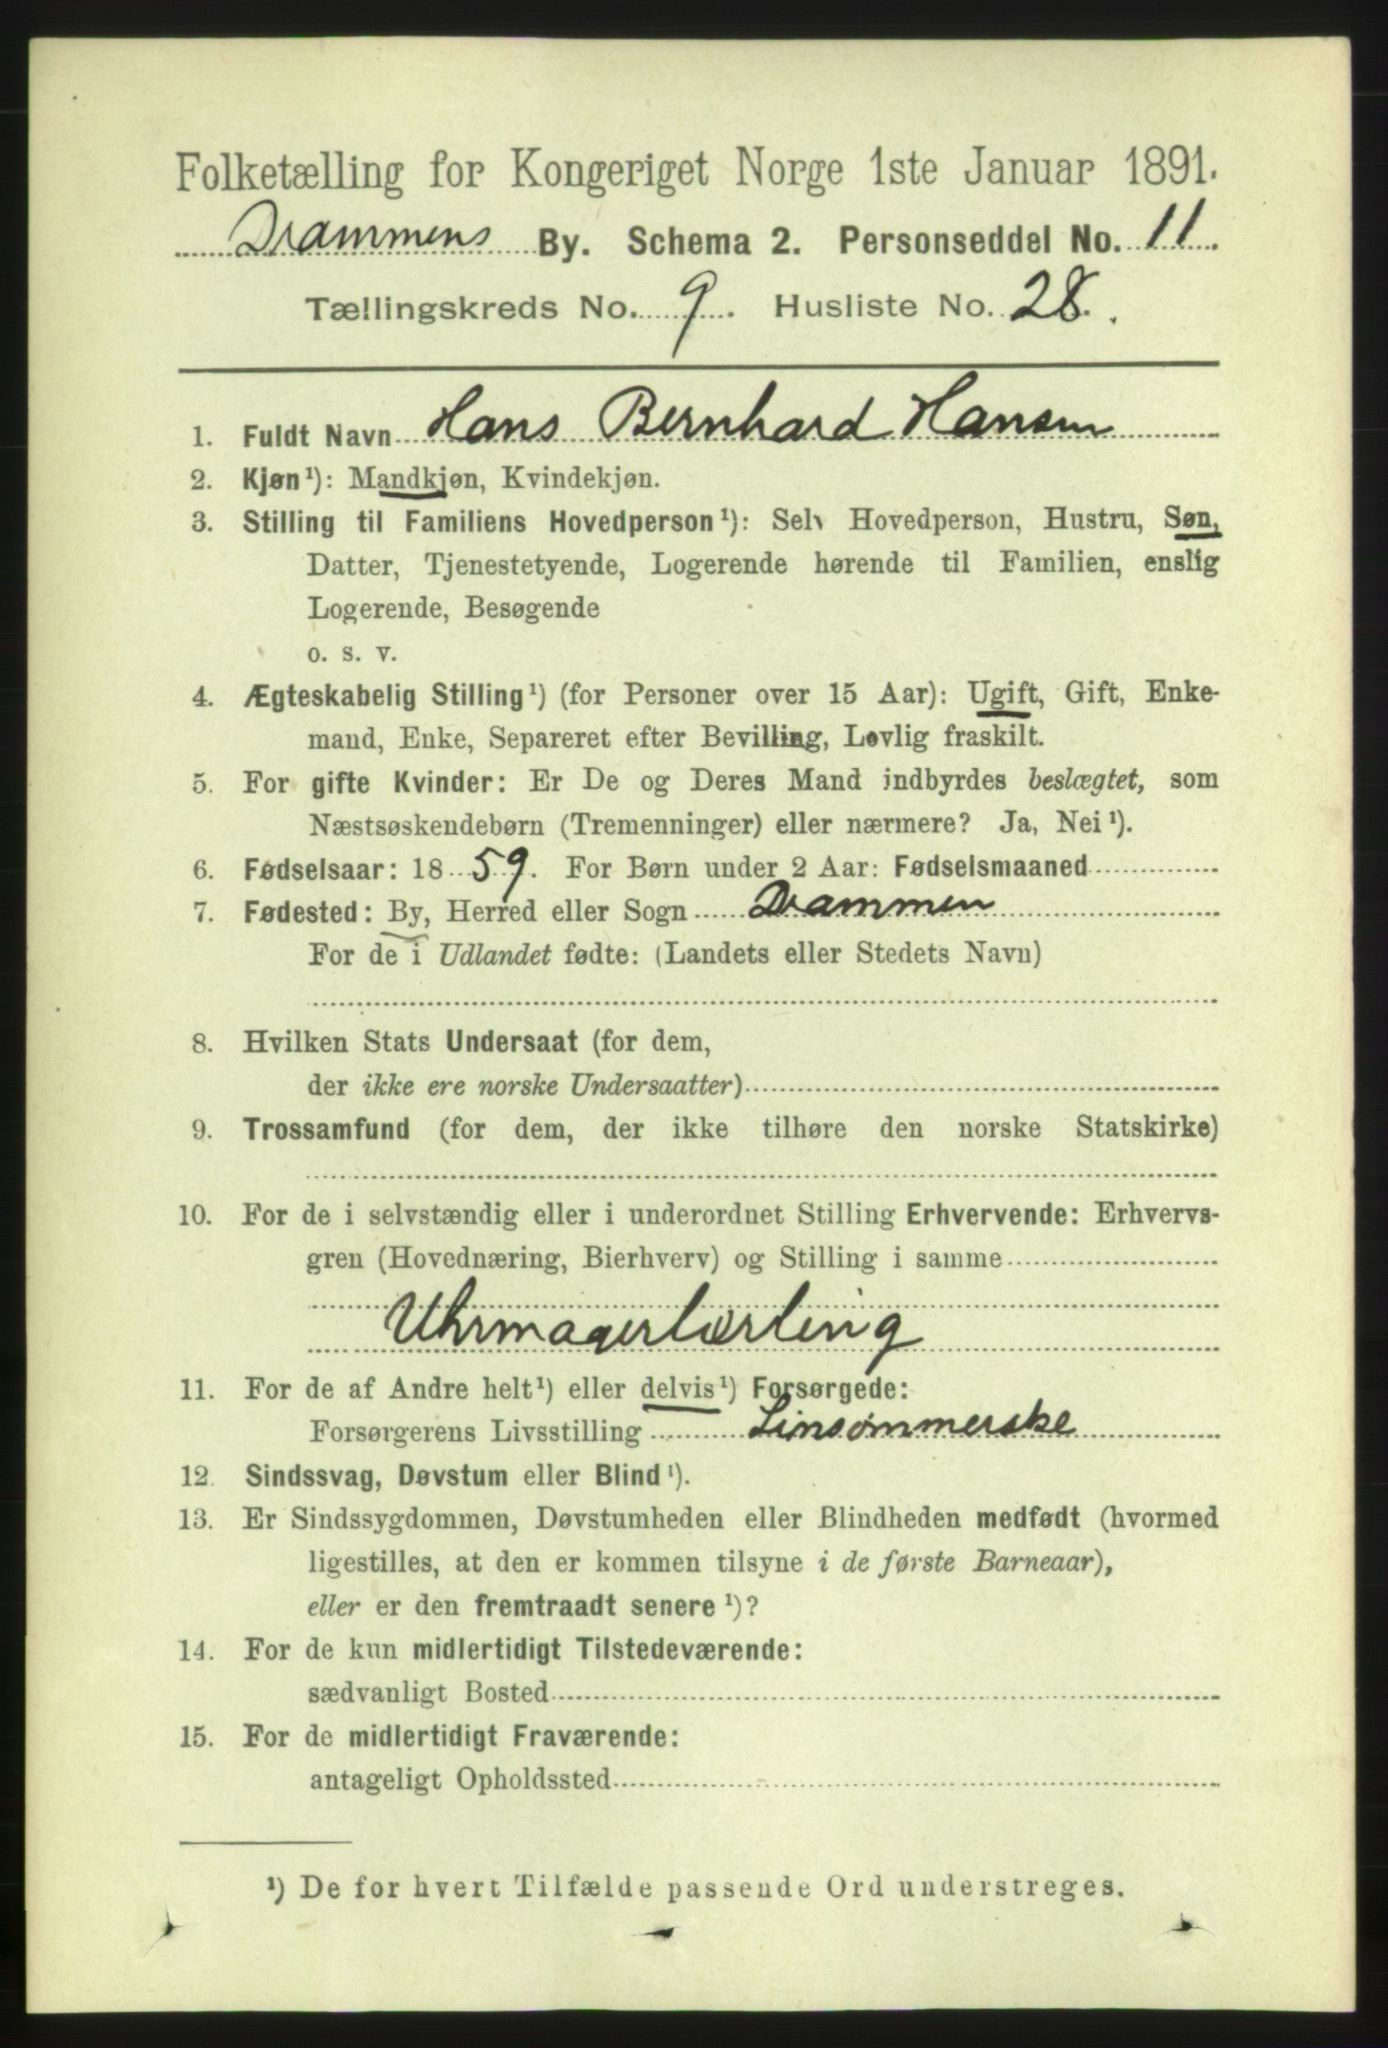 Folketælling for Kongeriget Norge 1ste Januar 1891.
Drammens By. Schema 2. Personseddel No. 11.
Tællingskreds No. 9. Husliste No. 28.
1. Fuldt Navn Hans Bernhard Hansen
2. Kjøn¹): Mandkjøn, Kvindekjøn.
3. Stilling til Familiens Hovedperson¹): Selv Hovedperson, Hustru, Søn,
Datter, Tjenestetyende, Logerende hørende til Familien, enslig
Logerende, Besøgende
o. s. v.
4. Ægteskabelig Stilling¹) (for Personer over 15 Aar): Ugift, Gift, Enke-
mand, Enke, Separeret efter Bevilling, Lovlig fraskilt.
5. For gifte Kvinder: Er De og Deres Mand indbyrdes beslægtet, som
Næstsøskendebørn (Tremenninger) eller nærmere? Ja, Nei¹).
6. Fødselsaar: 1859. For Børn under 2 Aar: Fødselsmaaned
7. Fødested: By, Herred eller Sogn Drammen
For de i Udlandet fødte: (Landets eller Stedets Navn)
8. Hvilken Stats Undersaat (for dem,
der ikke ere norske Undersaatter)
9. Trossamfund (for dem, der ikke tilhøre den norske Statskirke)
10. For de i selvstændig eller i underordnet Stilling Erhvervende: Erhvervs-
gren (Hovednæring, Bierhverv) og Stilling i samme
Uhrmagerlærling
11. For de af Andre helt¹) eller delvis¹) Forsørgede:
Forsørgerens Livsstilling Linsømmerske
12. Sindssvag, Døvstum eller Blind¹).
13. Er Sindssygdommen, Døvstumheden eller Blindheden medfødt (hvormed
ligestilles, at den er kommen tilsyne i de første Barneaar),
eller er den fremtraadt senere¹)?
14. For de kun midlertidigt Tilstedeværende:
sædvanligt Bosted
15. For de midlertidigt Fraværende:
antageligt Opholdssted
¹) De for hvert Tilfælde passende Ord understreges.